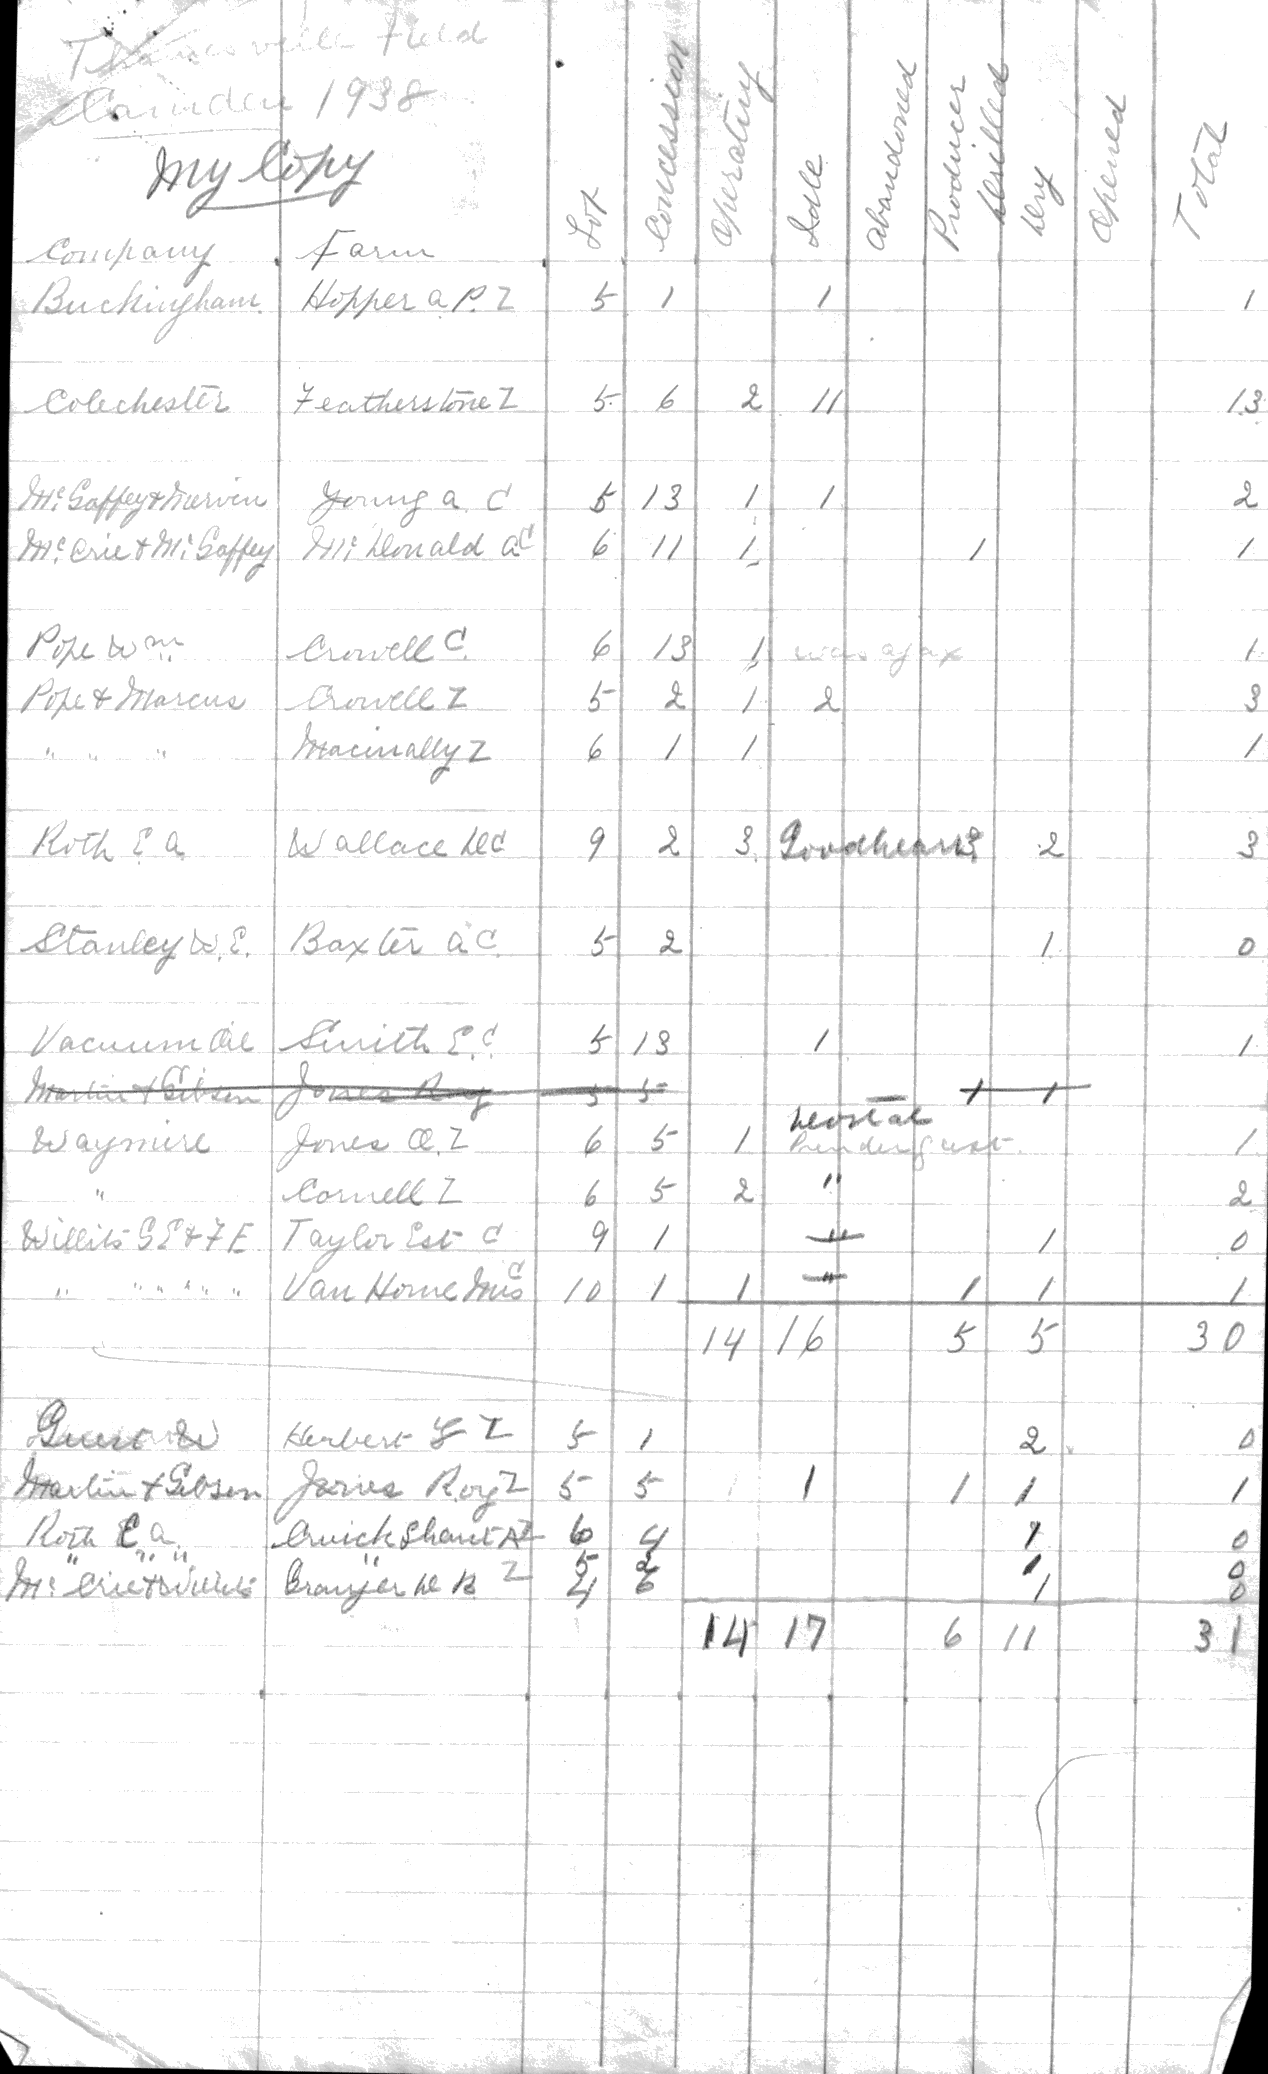 Thamesville Field
Camden 1938
My Copy
Company Farm Lot Concession Operating Idle Abandoned Producer Drilled Dry Opened Total
Buckingham Hopper A.P. Z 5 1 1 1
Colechester Featherstone Z 5 6 2 11 13
Mc Gaffey & Mervin Young A. C 5 13 1 1 2
Mc Crie & Mc Gaffey Mc Donald A C 6 11 1 1 1
Pope Wm Crowell C. 6 13 1 was ajax 1
Pope & Marcus Crowell Z 5 2 1 2 3
" " " Macinally Z 6 1 1 1
Roth E A Wallace D C 9 2 3 3 2 3
Stanley W. E. Baxter A C. 5 2 1 0
Vacuum Oil Smith E. C. 5 13 1 1
Martin & Gibson Jones Roy 5 5 1 1
Waymire Jones O. Z 6 5 1 1
" Cornell Z 6 5 2 " 2
Willits G E & F E Taylor Est C 9 1 " 1 0
" " " " " " Van Horne Mrs C 10 1 1 " 1 1 1
14 16 5 5 30
W Herbert Z 5 1 2 0
Martin & Gibson James Roy Z 5 5 1 1 1 1
Roth E A. Cruickshank A Z 6 4 1 0
" " " " 5 2 1 0
Mc Crie & Willits Granger D B Z 4 6 1 0
14 17 6 11 31